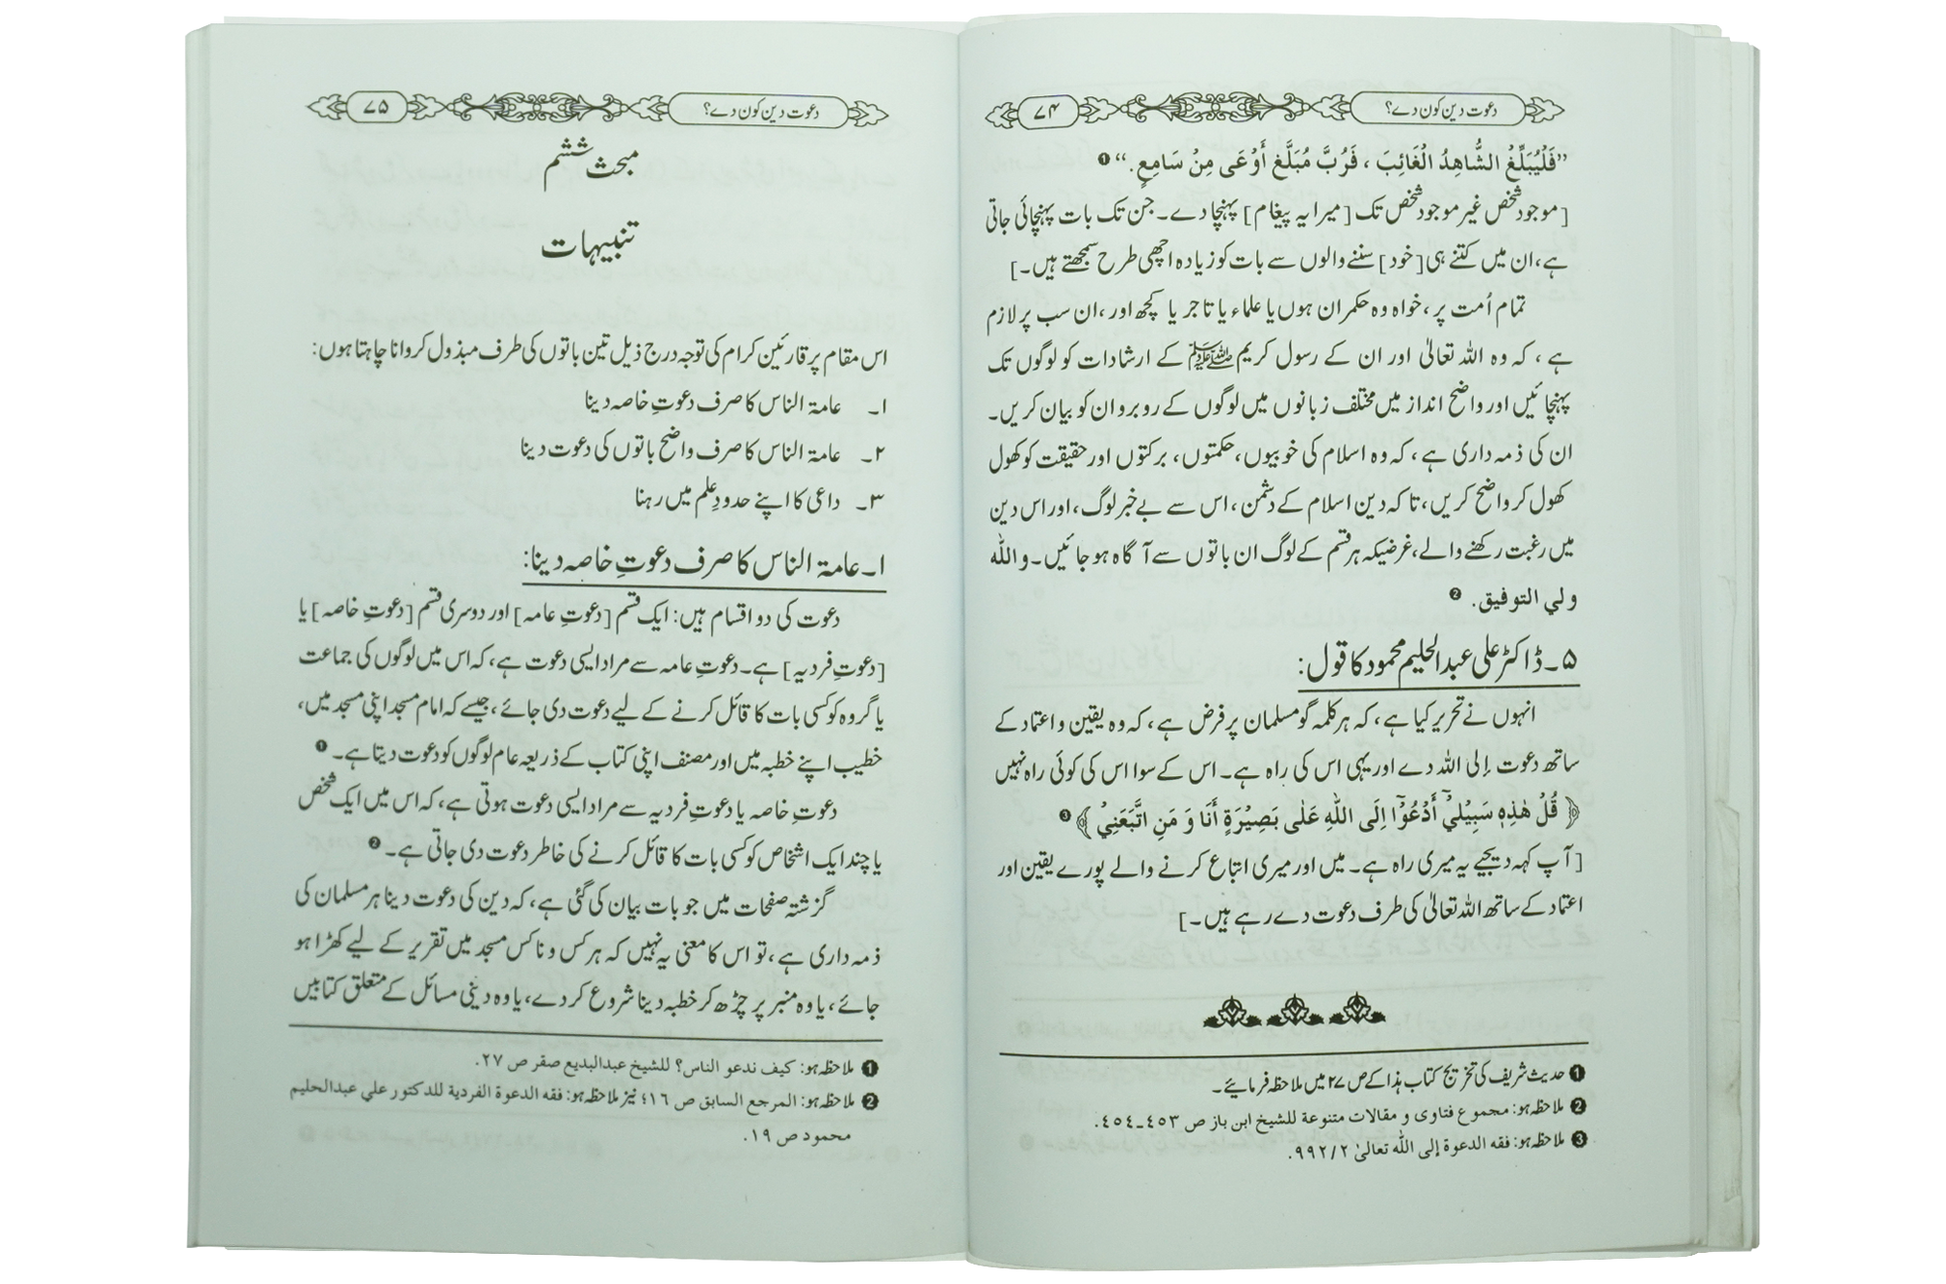 دعوت دین کون دے؟ ۷۴
”فَلْيُبَلِّغْ الشَّاهِدُ الْغَائِبَ ، فَرُبَّ مُبَلَّغٍ أَوْعَى مِنْ سَامِعٍ.“ ❶
[موجود شخص غیر موجود شخص تک [میرا یہ پیغام] پہنچا دے۔ جن تک بات پہنچائی جاتی
ہے، ان میں کتنے ہی [خود] سننے والوں سے بات کو زیادہ اچھی طرح سمجھتے ہیں۔]
تمام اُمت پر، خواہ وہ حکمران ہوں یا علماء یا تاجر یا کچھ اور، ان سب پر لازم
ہے، کہ وہ اللہ تعالیٰ اور ان کے رسول کریم ﷺ کے ارشادات کو لوگوں تک
پہنچائیں اور واضح انداز میں مختلف زبانوں میں لوگوں کے روبرو ان کو بیان کریں۔
ان کی ذمہ داری ہے، کہ وہ اسلام کی خوبیوں، حکمتوں، برکتوں اور حقیقت کو کھول
کھول کر واضح کریں، تاکہ دین اسلام کے دشمن، اس سے بے خبر لوگ، اور اس دین
میں رغبت رکھنے والے، غرضیکہ ہر قسم کے لوگ ان باتوں سے آگاہ ہو جائیں۔ واللہ
ولي التوفيق. ❷
۵۔ ڈاکٹر علی عبدالحلیم محمود کا قول:
انہوں نے تحریر کیا ہے، کہ ہر کلمہ گو مسلمان پر فرض ہے، کہ وہ یقین و اعتماد کے
ساتھ دعوت إلی اللہ دے اور یہی اس کی راہ ہے۔ اس کے سوا اس کی کوئی راہ نہیں
﴿ قُلْ هٰذِهٖ سَبِيْلِيْٓ أَدْعُوْٓا اِلَى اللّٰهِ عَلٰى بَصِيْرَةٍ أَنَا وَ مَنِ اتَّبَعَنِيْ ﴾ ❸
[آپ کہہ دیجیے یہ میری راہ ہے۔ میں اور میری اتباع کرنے والے پورے یقین اور
اعتماد کے ساتھ اللہ تعالیٰ کی طرف دعوت دے رہے ہیں۔]
❶ حدیث شریف کی تخریج کتاب ہذا کے ص ۲۷ میں ملاحظہ فرمائیے۔
❷ ملاحظہ ہو: مجموع فتاوى و مقالات متنوعة للشيخ ابن باز ص ٤٥٣ـ٤٥٤.
❸ ملاحظہ ہو: فقه الدعوة إلى الله تعالىٰ ٩٩٢/٢.
دعوت دین کون دے؟ ۷۵
مبحث ششم
تنبیہات
اس مقام پر قارئین کرام کی توجہ درج ذیل تین باتوں کی طرف مبذول کروانا چاہتا ہوں:
۱۔ عامۃ الناس کا صرف دعوتِ خاصہ دینا
۲۔ عامۃ الناس کا صرف واضح باتوں کی دعوت دینا
۳۔ داعی کا اپنے حدودِ علم میں رہنا
۱۔ عامۃ الناس کا صرف دعوتِ خاصہ دینا:
دعوت کی دو اقسام ہیں: ایک قسم [دعوتِ عامہ] اور دوسری قسم [دعوتِ خاصہ] یا
[دعوتِ فردیہ] ہے۔ دعوتِ عامہ سے مراد ایسی دعوت ہے، کہ اس میں لوگوں کی جماعت
یا گروہ کو کسی بات کا قائل کرنے کے لیے دعوت دی جائے، جیسے کہ امام مسجد اپنی مسجد میں،
خطیب اپنے خطبہ میں اور مصنف اپنی کتاب کے ذریعہ عام لوگوں کو دعوت دیتا ہے۔ ❶
دعوتِ خاصہ یا دعوتِ فردیہ سے مراد ایسی دعوت ہوتی ہے، کہ اس میں ایک شخص
یا چند ایک اشخاص کو کسی بات کا قائل کرنے کی خاطر دعوت دی جاتی ہے۔ ❷
گزشتہ صفحات میں جو بات بیان کی گئی ہے، کہ دین کی دعوت دینا ہر مسلمان کی
ذمہ داری ہے، تو اس کا معنی یہ نہیں کہ ہر کس و ناکس مسجد میں تقریر کے لیے کھڑا ہو
جائے، یا وہ منبر پر چڑھ کر خطبہ دینا شروع کر دے، یا وہ دینی مسائل کے متعلق کتابیں
❶ ملاحظہ ہو: كيف ندعو الناس؟ للشيخ عبدالبديع صقر ص ٢٧.
❷ ملاحظہ ہو: المرجع السابق ص ١٦؛ نیز ملاحظہ ہو: فقه الدعوة الفردية للدكتور علي عبدالحليم
محمود ص ١٩.